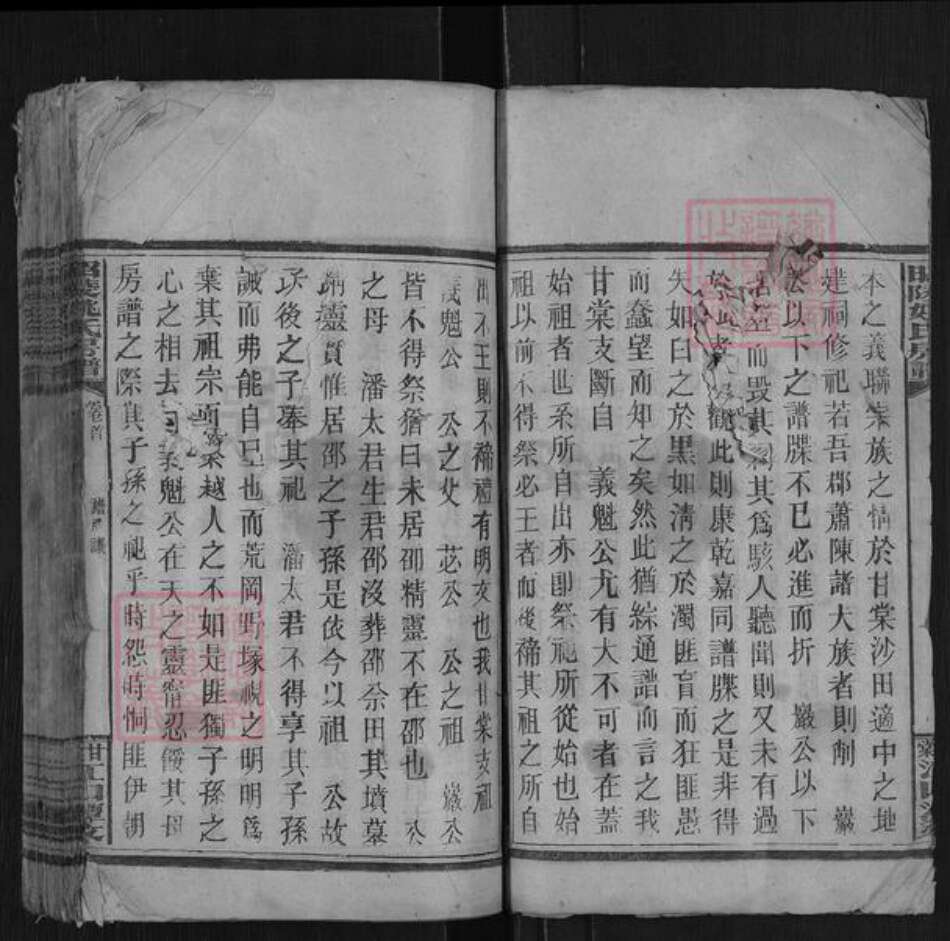 本之義聯宗族之情於甘棠沙田適中之地
建祠修祀若吾郡蕭陳諸大族者則劑 巖
公以下之譜牒不已必進而折 巖公以下
而毀其祠其爲駭人聽聞則又未有過
於此者 觀此則康乾嘉同譜牒之是非得
失如白之於黑如淸之於濁匪盲而狂匪愚
而蠢望而知之矣然此猶綜通譜而言之我
甘棠支斷自 義魁公尤有大不可者在蓋
始祖者世系所自出亦卽祭祀所從始也始
祖以前不得祭必王者而後禘其祖之所自
出不王則不禘禮有明文也我甘棠支祖
義魁公 公之父 必公 公之祖 巖公
皆不得祭猶曰未居邵精靈不在邵也 公
之母 潘太君生君邵沒葬邵佘田其墳墓
靈實惟居邵之子孫是依今以祖 公故
後之子奉其祀 潘太君不得享其子孫
誠而弗能自已也而荒岡野塚視之明明爲
棄其祖宗而越人之不如是匪獨子孫之
心之相去 義魁公在天之靈甯忍餒其母
房譜之際其子孫之祀乎時怨時恫匪伊朝
卷首